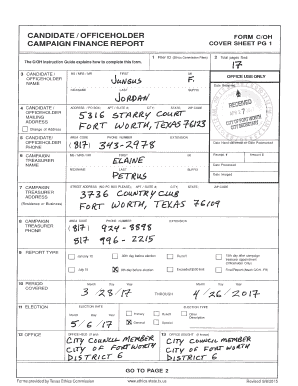 CANDIDATE / OFFICEHOLDER
CAMPAIGN FINANCE REPORT
FORM C/OH
COVER SHEET PG 1
The C/OH Instruction Guide explains how to complete this form.
1 Filer ID (Ethics Commission Filers)
2 Total pages filed:
17
3 CANDIDATE / OFFICEHOLDER NAME
MS / MRS / MR FIRST MI
JUNGUS F.
NICKNAME LAST SUFFIX
JORDAN
OFFICE USE ONLY
Date Received
RECEIVED
CITY OF FORT WORTH
CITY SECRETARY
4 CANDIDATE / OFFICEHOLDER MAILING ADDRESS
Change of Address
ADDRESS / PO BOX; APT / SUITE #; CITY; STATE; ZIP CODE
5316 STARRY COURT
FORT WORTH, TEXAS 76123
5 CANDIDATE / OFFICEHOLDER PHONE
AREA CODE PHONE NUMBER EXTENSION
(817) 343-2978
Date Hand-delivered or Date Postmarked
6 CAMPAIGN TREASURER NAME
MS / MRS / MR FIRST MI
ELAINE
NICKNAME LAST SUFFIX
PETRUS
Receipt # Amount $
Date Processed
Date Imaged
7 CAMPAIGN TREASURER ADDRESS
(Residence or Business)
STREET ADDRESS (NO PO BOX PLEASE); APT / SUITE #; CITY; STATE; ZIP CODE
3736 COUNTRY CLUB
FORT WORTH, TEXAS 76109
8 CAMPAIGN TREASURER PHONE
AREA CODE PHONE NUMBER EXTENSION
(817) 924-8898
817 996-2215
9 REPORT TYPE
January 15 30th day before election Runoff 15th day after campaign treasurer appointment (Officeholder Only)
July 15 8th day before election Exceeded $500 limit Final Report (Attach C/OH - FR)
10 PERIOD COVERED
Month Day Year Month Day Year
3 / 28 / 17 THROUGH 4 / 26 / 2017
11 ELECTION
ELECTION DATE ELECTION TYPE
Month Day Year
5 / 6 / 17
Primary Runoff Other Description
General Special
12 OFFICE
OFFICE HELD (if any)
CITY COUNCIL MEMBER
CITY OF FORT WORTH
DISTRICT 6
13 OFFICE SOUGHT (if known)
CITY COUNCIL MEMBER
CITY OF FORT WORTH
DISTRICT 6
GO TO PAGE 2
Forms provided by Texas Ethics Commission www.ethics.state.tx.us Revised 9/8/2015